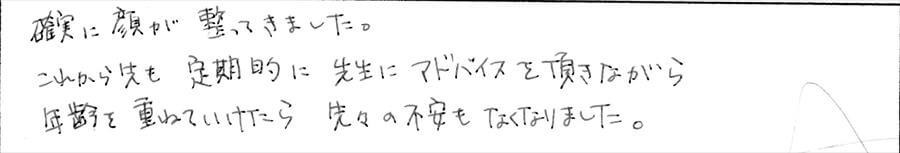 確実に顔が整ってきました。
これから先も定期的に先生にアドバイスを頂きながら
年齢を重ねていけたら先々の不安もなくなりました。